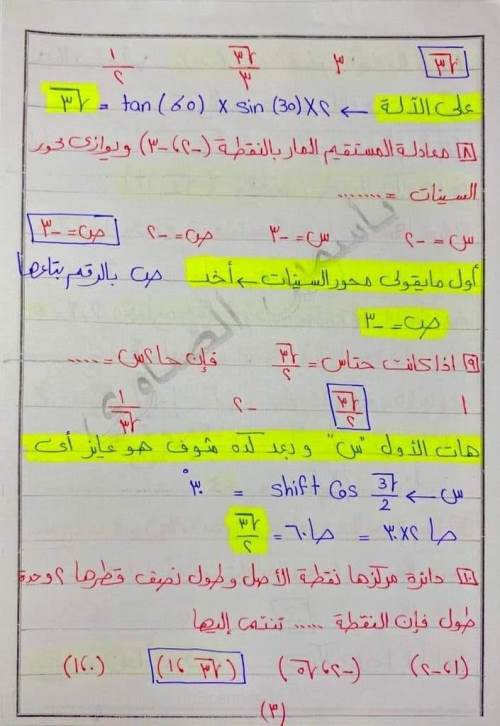 ١/٢ ٣ √٣/٣ √٣
على الآلة ← tan(٦٠) × sin(30)×٢ = √٣
٨ معادلة المستقيم المار بالنقطة (-٢، -٣) ويوازى محور
السينات = .......
س = -٢ س = -٣ ص = -٢ ص = -٣
أول ما يقولى محور السينات ← أخد ص بالرقم بتاعها
ص = -٣
٩ اذا كانت حتاس = √٣/٢ فإن حا٢س = ....
١ √٣/٢ -٢ ١/√٣
هات الأول "س" وبعد كده شوف هو عايز أى
س ← shift Cos √3/2 = ٣٠°
حا ٢×٣٠ = حا٦٠ = √٣/٢
١٠ دائرة مركزها نقطة الأصل وطول نصف قطرها ٢ وحدة
طول فإن النقطة ..... تنتمى إليها
(١، -٢) (-٢، √٥) (√٣، ١) (٠، ١)
(٣)
ياسمين الصاوي